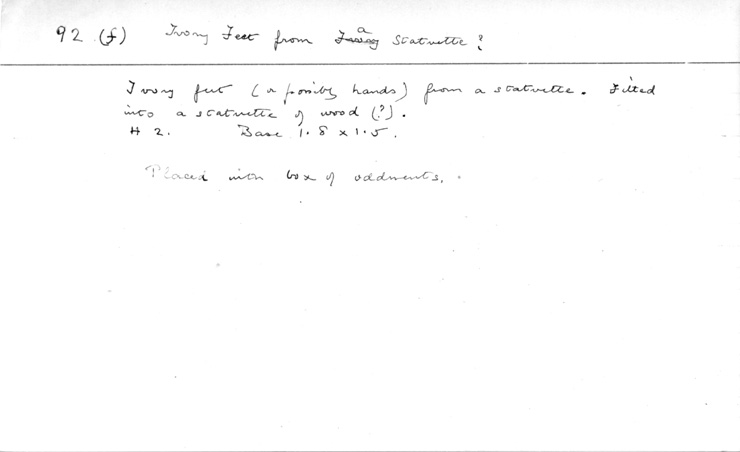 92 (f) Ivory Feet from a Statuette?
Ivory feet (or possibly hands) from a statuette. Fitted
into a statuette of wood (?).
H 2. Base 1.8 x 1.5.
Placed with box of oddments.